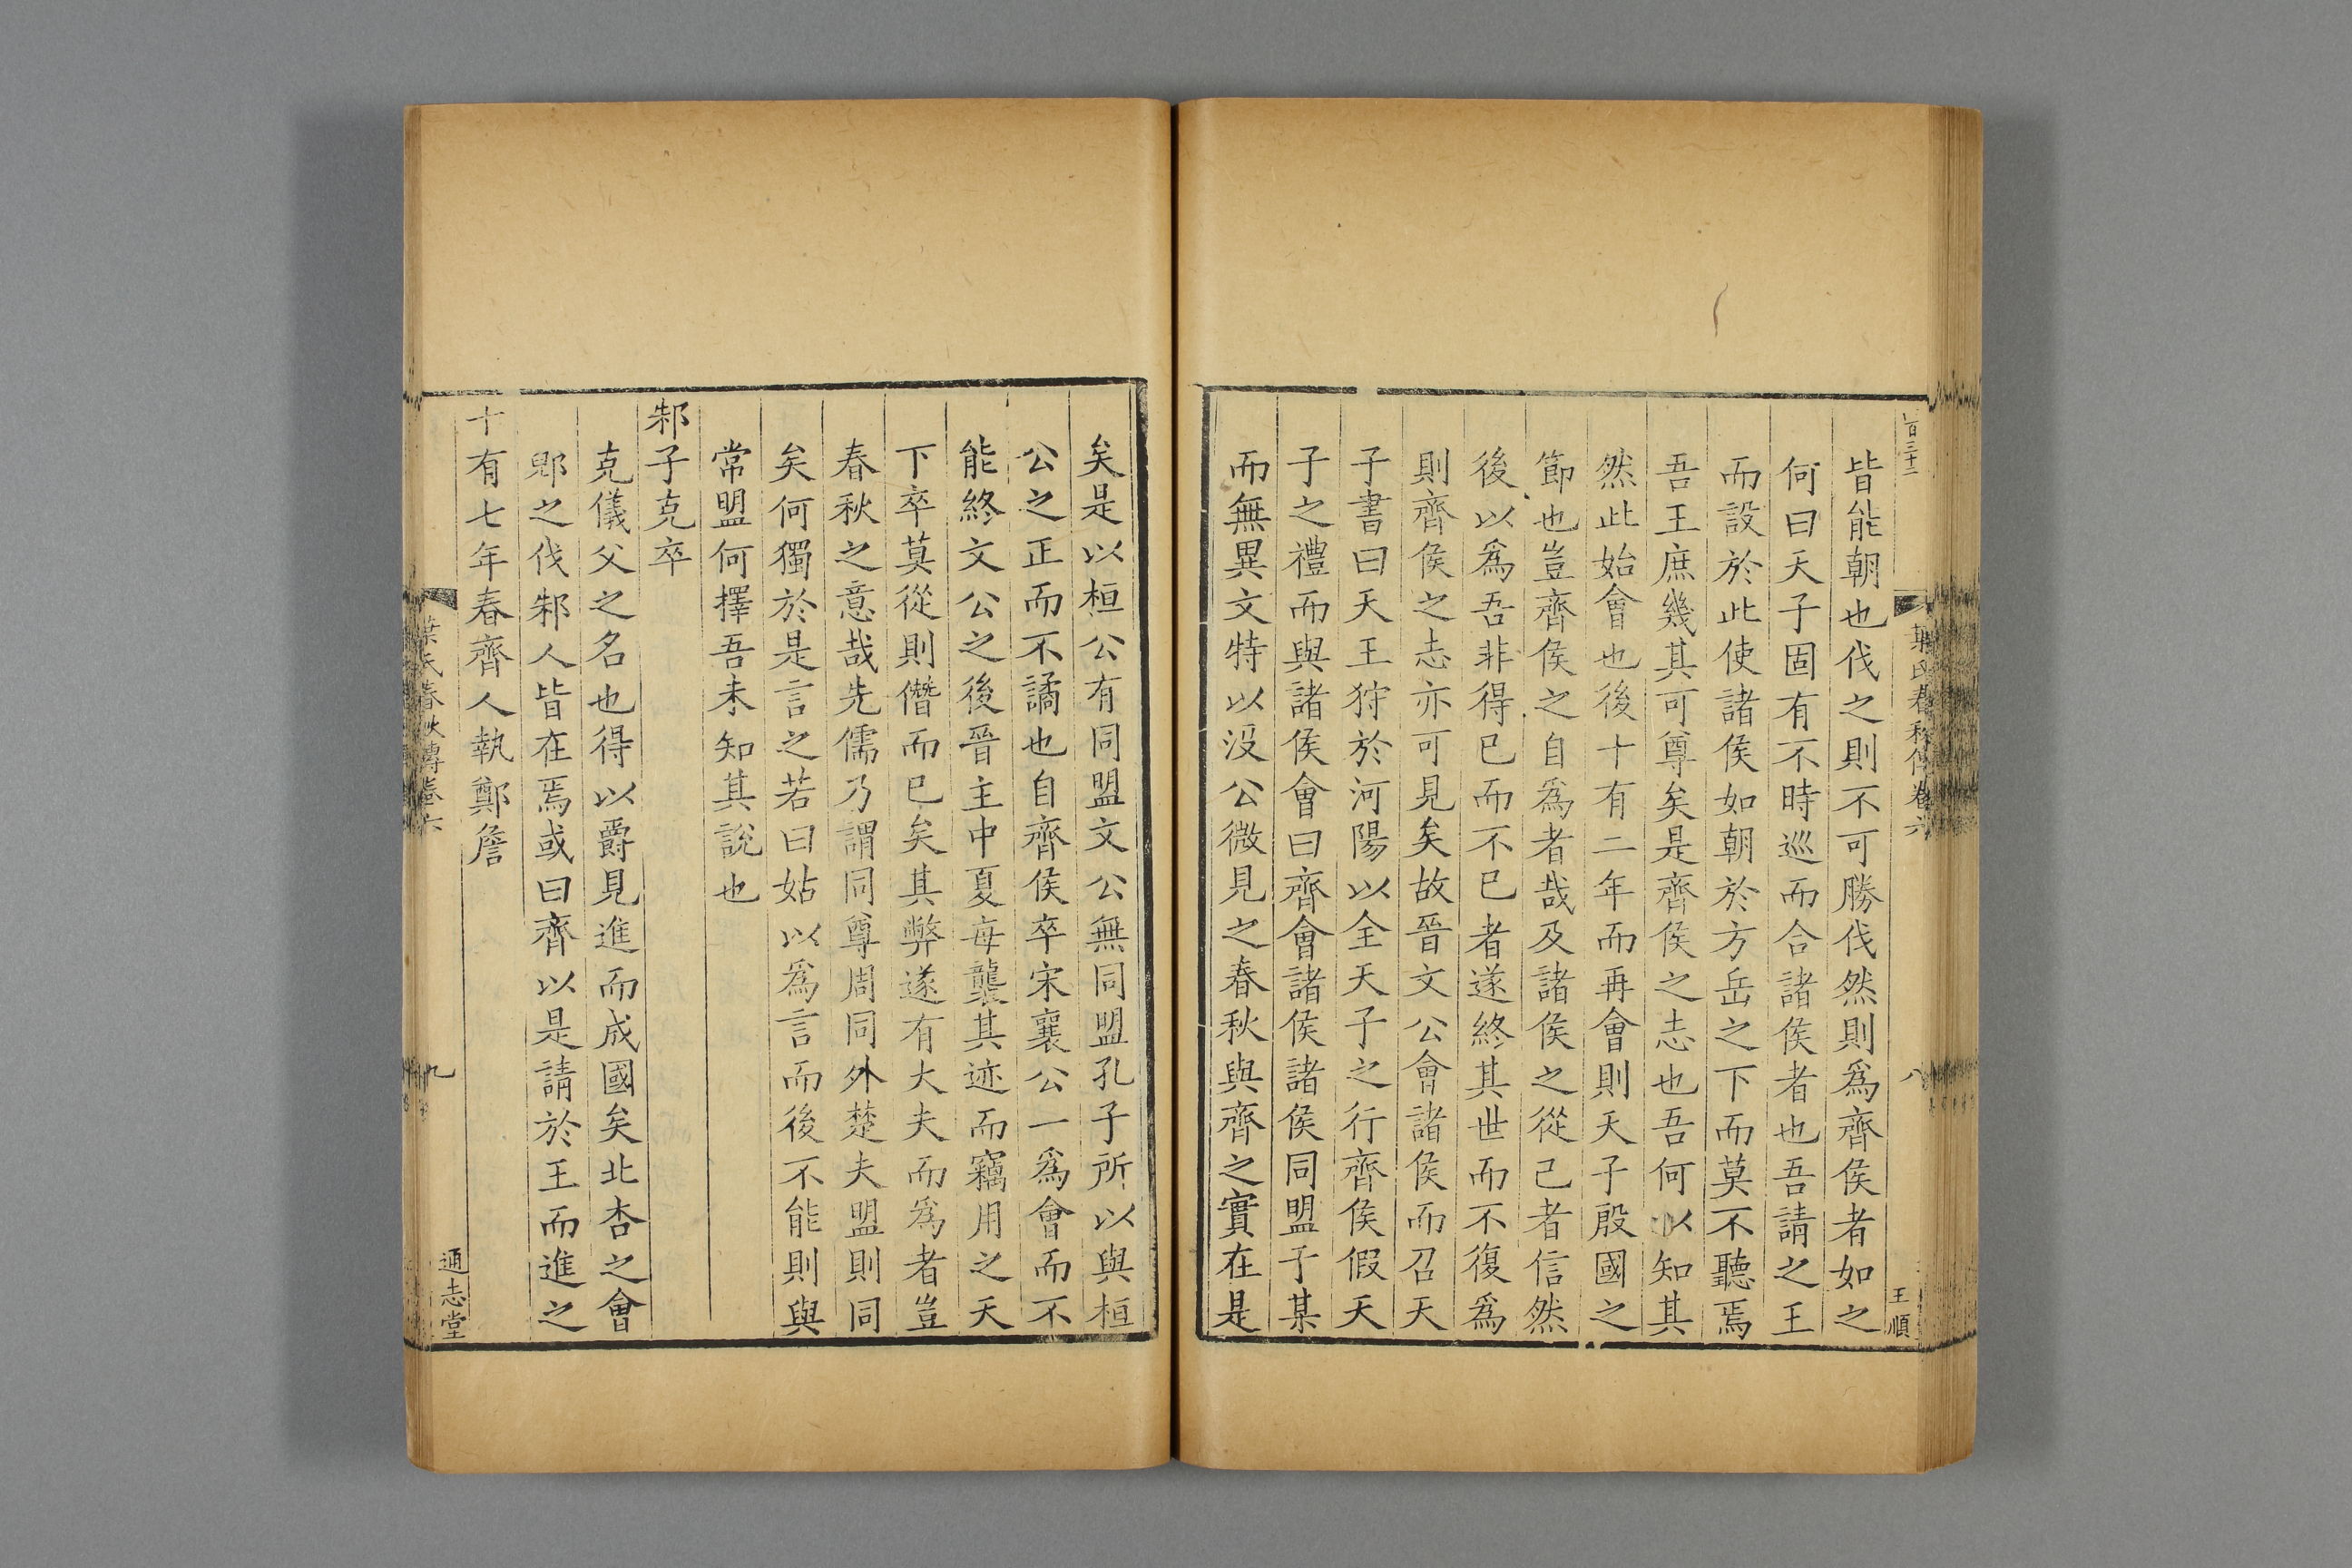 百三十二
葉氏春秋傳卷六
八
王順
皆能朝也伐之則不可勝伐然則爲齊侯者如之
何曰天子固有不時巡而合諸侯者也吾請之王
而設於此使諸侯如朝於方岳之下而莫不聽焉
吾王庶幾其可尊矣是齊侯之志也吾何以知其
然此始會也後十有二年而再會則天子殷國之
節也豈齊侯之自爲者哉及諸侯之從己者信然
後以爲吾非得已而不已者遂終其世而不復爲
則齊侯之志亦可見矣故晉文公會諸侯而召天
子書曰天王狩於河陽以全天子之行齊侯假天
子之禮而與諸侯會曰齊會諸侯諸侯同盟于某
而無異文特以没公微見之春秋與齊之實在是
矣是以桓公有同盟文公無同盟孔子所以與桓
公之正而不譎也自齊侯卒宋襄公一爲會而不
能終文公之後晉主中夏每襲其迹而竊用之天
下卒莫從則僭而已矣其弊遂有大夫而爲者豈
春秋之意哉先儒乃謂同尊周同外楚夫盟則同
矣何獨於是言之若曰姑以爲言而後不能則與
常盟何擇吾未知其說也
邾子克卒
克儀父之名也得以爵見進而成國矣北杏之會
郳之伐邾人皆在焉或曰齊以是請於王而進之
十有七年春齊人執鄭詹
葉氏春秋傳卷六
九
通志堂